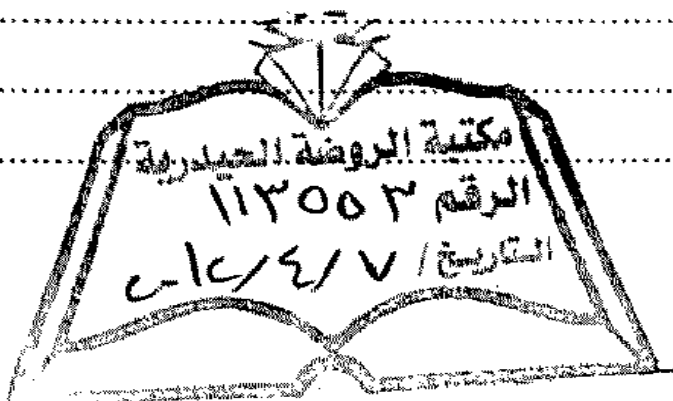 مكتبة الروضة الحيدرية
الرقم ١١٣٥٥٣
التاريخ / ٧ / ٤ / ٢٠١٢